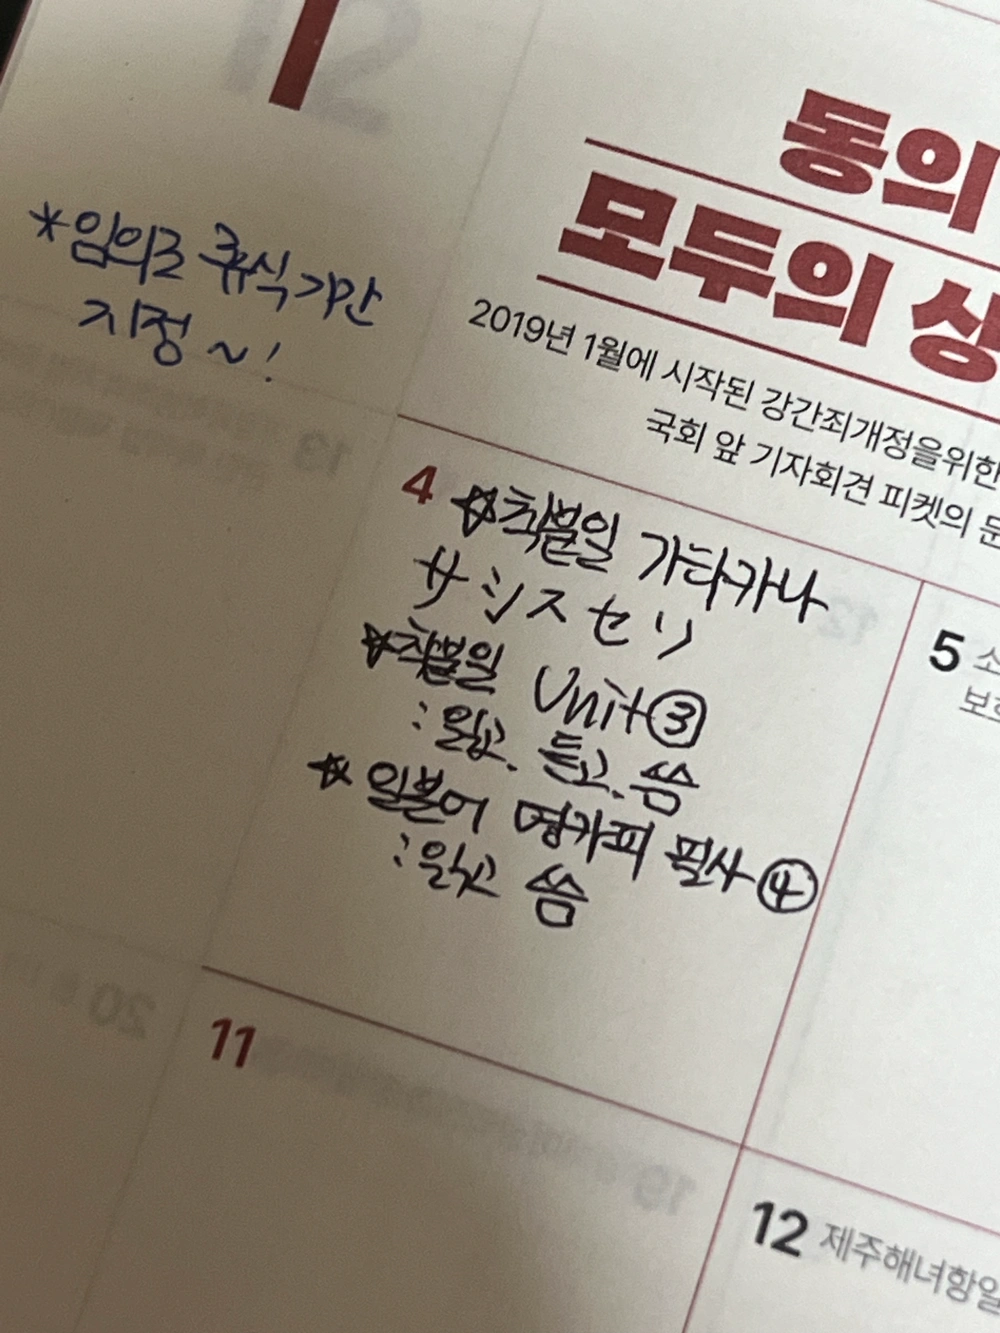 1
동의
모두의 상
2019년 1월에 시작된 강간죄개정을위한
국회 앞 기자회견 피켓의 문
*임의로 휴식기간
지정~!
4 ☆착붙일 가타카나
サシスセソ
☆착붙일 Unit③
:읽고. 듣고. 씀
☆일본어 명카피 필사④
:읽고 씀
5 소
보호
11
12 제주해녀항일
12
13
20
19